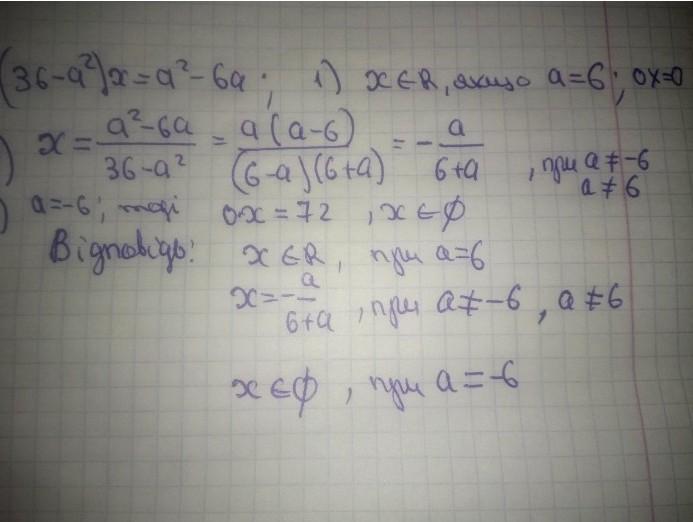 (36-a²)x=a²-6a; 1) x∈R, якщо a=6; 0x=0
) x = \frac{a²-6a}{36-a²} = \frac{a(a-6)}{(6-a)(6+a)} = -\frac{a}{6+a}, при a≠-6
a≠6
) a=-6; тоді 0·x=72, x∈∅
Відповідь: x∈R, при a=6
x=-\frac{a}{6+a}, при a≠-6, a≠6
x∈∅, при a=-6